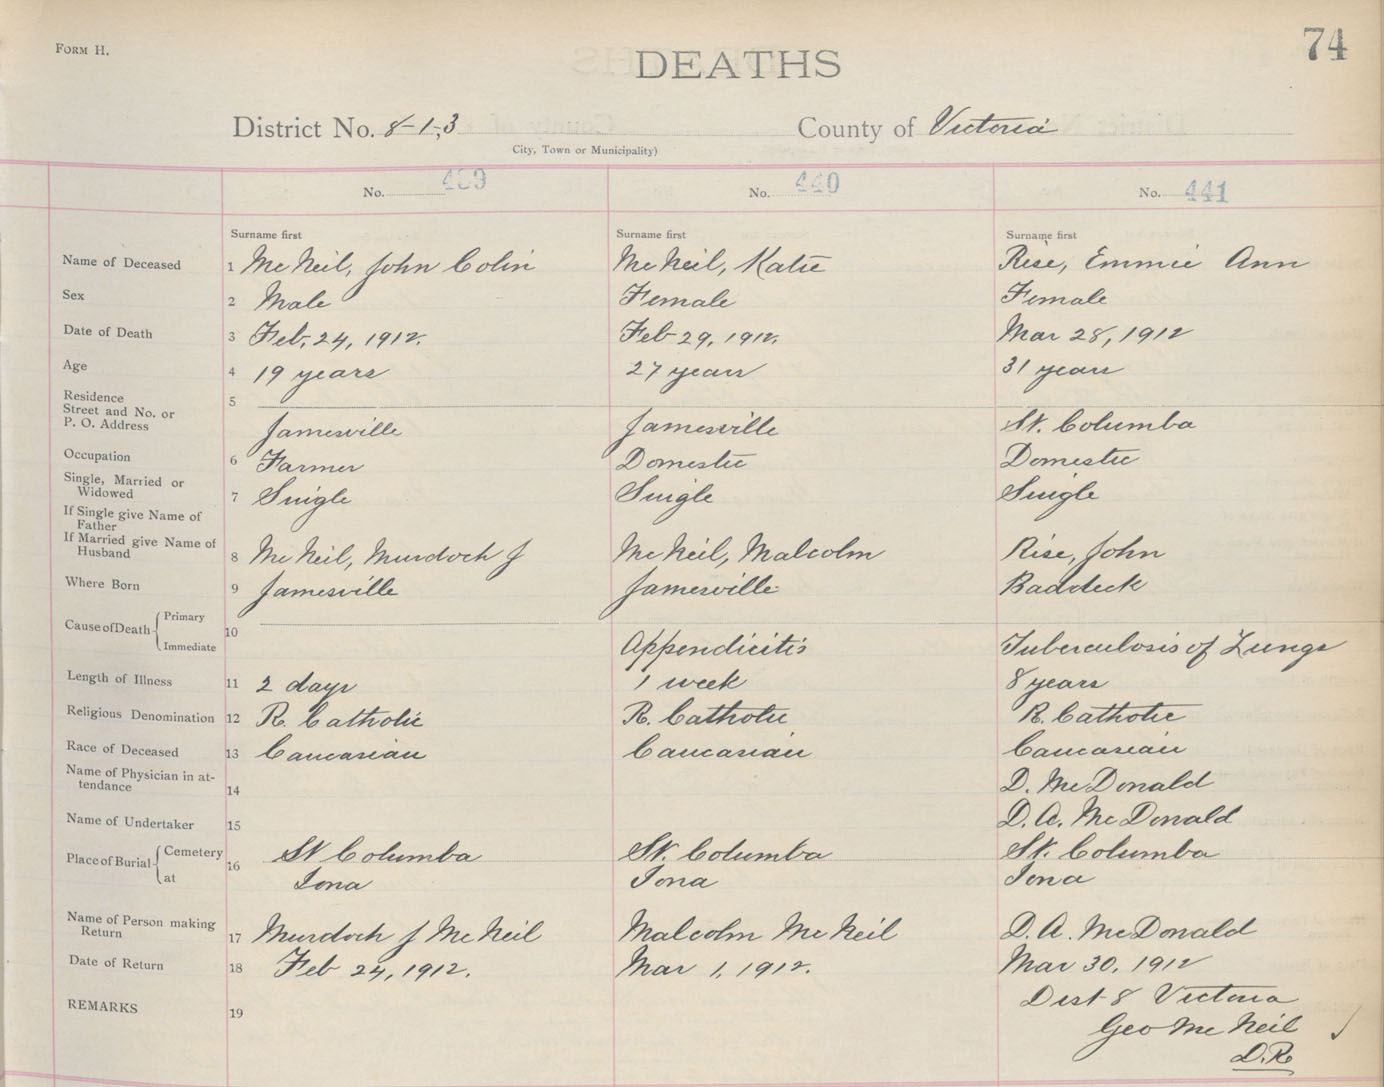 FORM H.
74
DEATHS
District No. 8-1-3 County of Victoria
City, Town or Municipality)
No. 439 No. 440 No. 441
Surname first Surname first Surname first
Name of Deceased 1 McNeil, John Colin McNeil, Katie Rise, Emmie Ann
Sex 2 Male Female Female
Date of Death 3 Feb. 24, 1912. Feb 29, 1912. Mar 28, 1912
Age 4 19 years 27 years 31 years
Residence 5
Street and No. or
P. O. Address Jamesville Jamesville St. Columba
Occupation 6 Farmer Domestic Domestic
Single, Married or
Widowed 7 Single Single Single
If Single give Name of
Father
If Married give Name of
Husband 8 McNeil, Murdoch J McNeil, Malcolm Rise, John
Where Born 9 Jamesville Jamesville Baddeck
Cause of Death Primary 10
Immediate Appendicitis Tuberculosis of Lungs
Length of Illness 11 2 days 1 week 8 years
Religious Denomination 12 R. Catholic R. Catholic R. Catholic
Race of Deceased 13 Caucasian Caucasian Caucasian
Name of Physician in at-
tendance 14 D. McDonald
Name of Undertaker 15 D. A. McDonald
Place of Burial Cemetery 16 St Columba St. Columba St. Columba
at Iona Iona Iona
Name of Person making
Return 17 Murdoch J McNeil Malcolm McNeil D. A. McDonald
Date of Return 18 Feb 24, 1912. Mar 1, 1912. Mar 30, 1912
REMARKS 19 Dist 8 Victoria
Geo McNeil
D.R